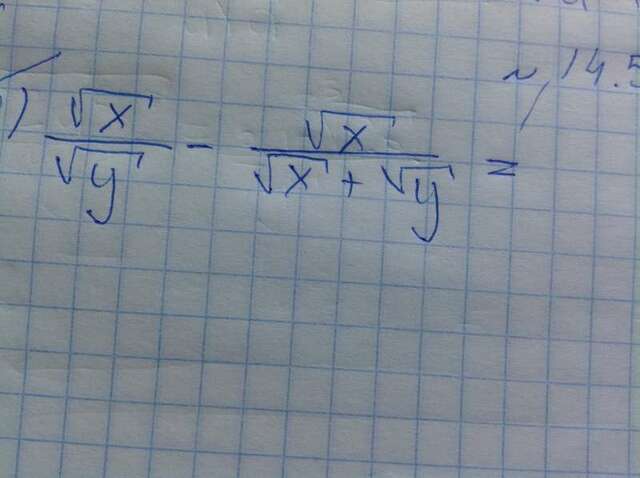 ~ 14.5
) √x/√y - √x/(√x + √y) =